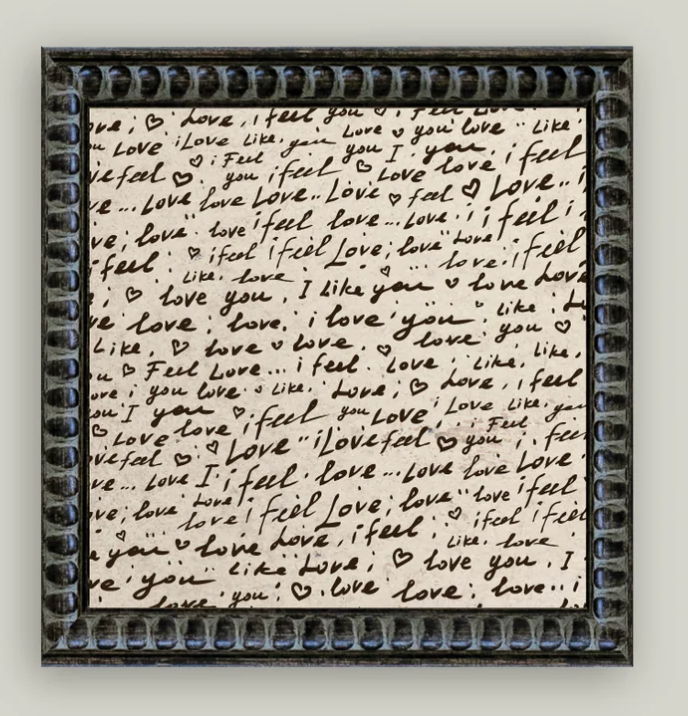 ove; ♡ Love, i feel you ♡ i Feel Love
Love iLove Like, you Love ♡ you love Like
♡ i Feel you I you.
ve feel ♡ you ifeel ♡ Love love, i feel
ve... Love love Love.. Love ♡ feel ♡ Love.. i
ve; love love ifeel love...Love i ifeel i
ifeel ♡ ifeel ifeel Love; love Love
Like. love love. ifeel
♡ love you. I Like you ♡ love Love
ve love, love, i love you Like
Like, ♡ love ♡ love. ♡ love you ♡
♡ Feel Love... i feel. Love Like, Like,
ove i you love ♡ Like. Love; ♡ Love, i feel
ou I you ♡ ifeel you Love i Love Like. you
♡ Love love ♡ Love iLove feel ♡ you i Feel
ovefeel ♡ i feel
ve... Love I ifeel love...Love love Love
ve; love Love ifeel Love; love love ifeel
love ♡ ifeel ifeel
♡ you ♡ love Love, ifeel Like, love
ve you Like Love; ♡ love you. I
love you ♡ love love; love..i